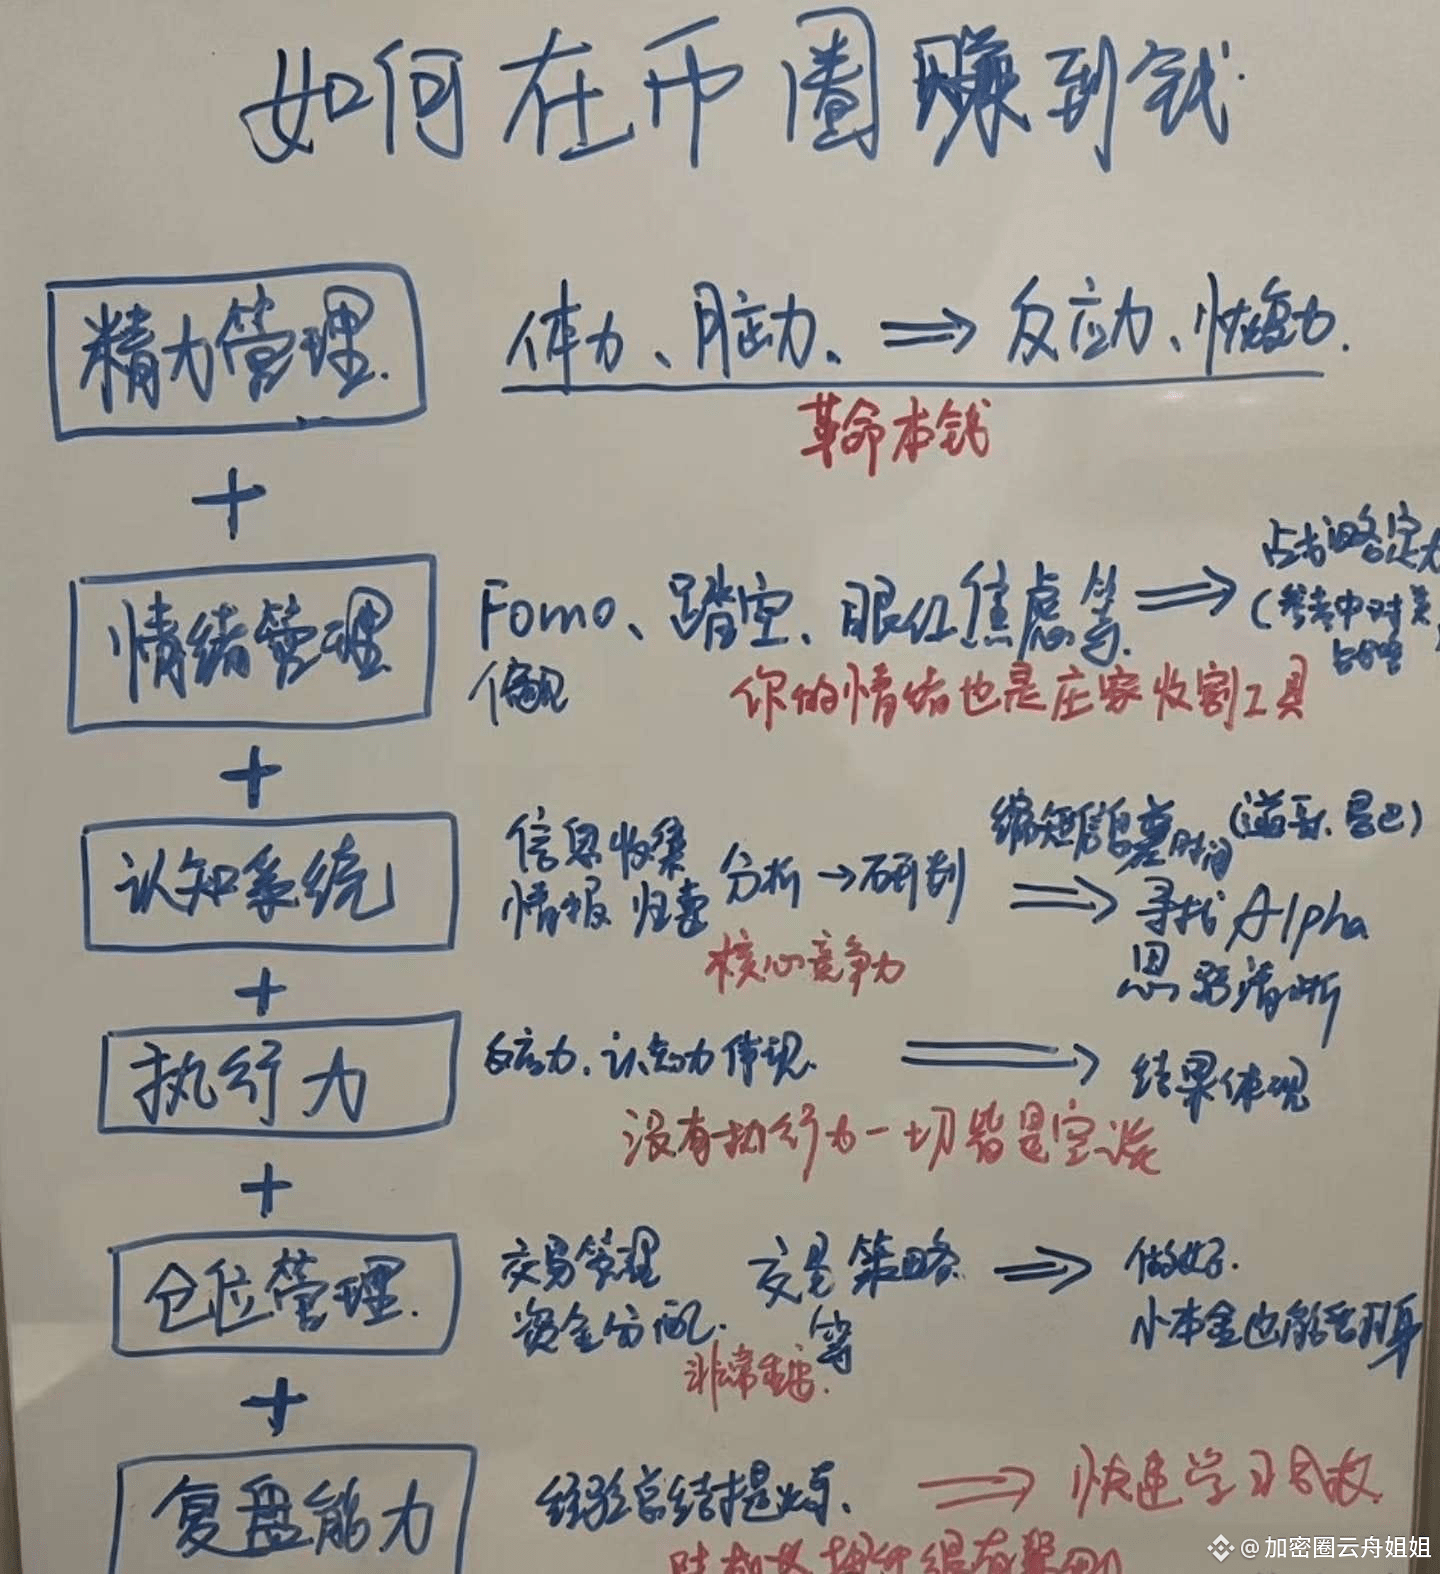 如何在币圈赚到钱.
精力管理.
体力、脑力、 ⇒ 反应力、恢复力.
革命本钱
+
情绪管理
Fomo、踏空、眼红焦虑等. ⇒
偏见
占战略定力
(参考中对美
战略
你的情绪也是庄家收割工具
+
认知系统
信息收集
情报 归纳
分析 → 研判 ⇒
缩短信息差时间
寻找 Alpha
思路清晰
核心竞争力
+
执行力
反应力、认知力体现. ⇒ 结果体现
没有执行力一切皆是空谈
+
仓位管理.
交易管理
资金分配.
交易策略
等
⇒
做好.
小本金也能翻身
非常重要.
+
复盘能力
经验总结提炼、 ⇒ 快速学习
@加密圈云舟姐姐